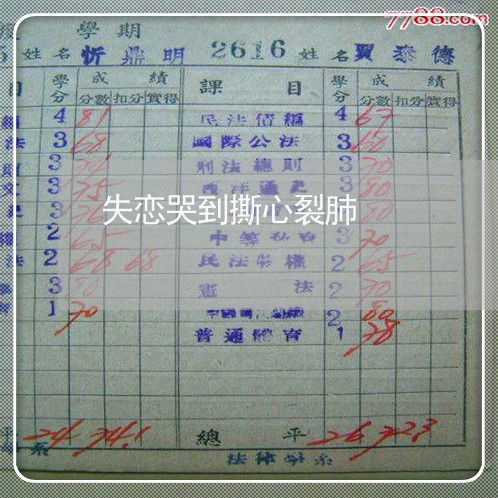 7788.com
學期
姓名 忻鼎明 2616 姓名 賈泰德
目 學分 成績 分數 扣分 實得 課目 學分 成績 分數 扣分 實得
4 81 民法債編 4 67
法 3 68 國際公法 3 60
3 刑法總則 3 70
3 75 西洋通史 3 80
失恋哭到撕心裂肺
2 65 3 70
法 2 68 68 民法物權 2 65
3 80 憲法 2 70
1 70 2 80
普通體育 1 78
平 24 74.1 總平 26 72.3
系 法律學系